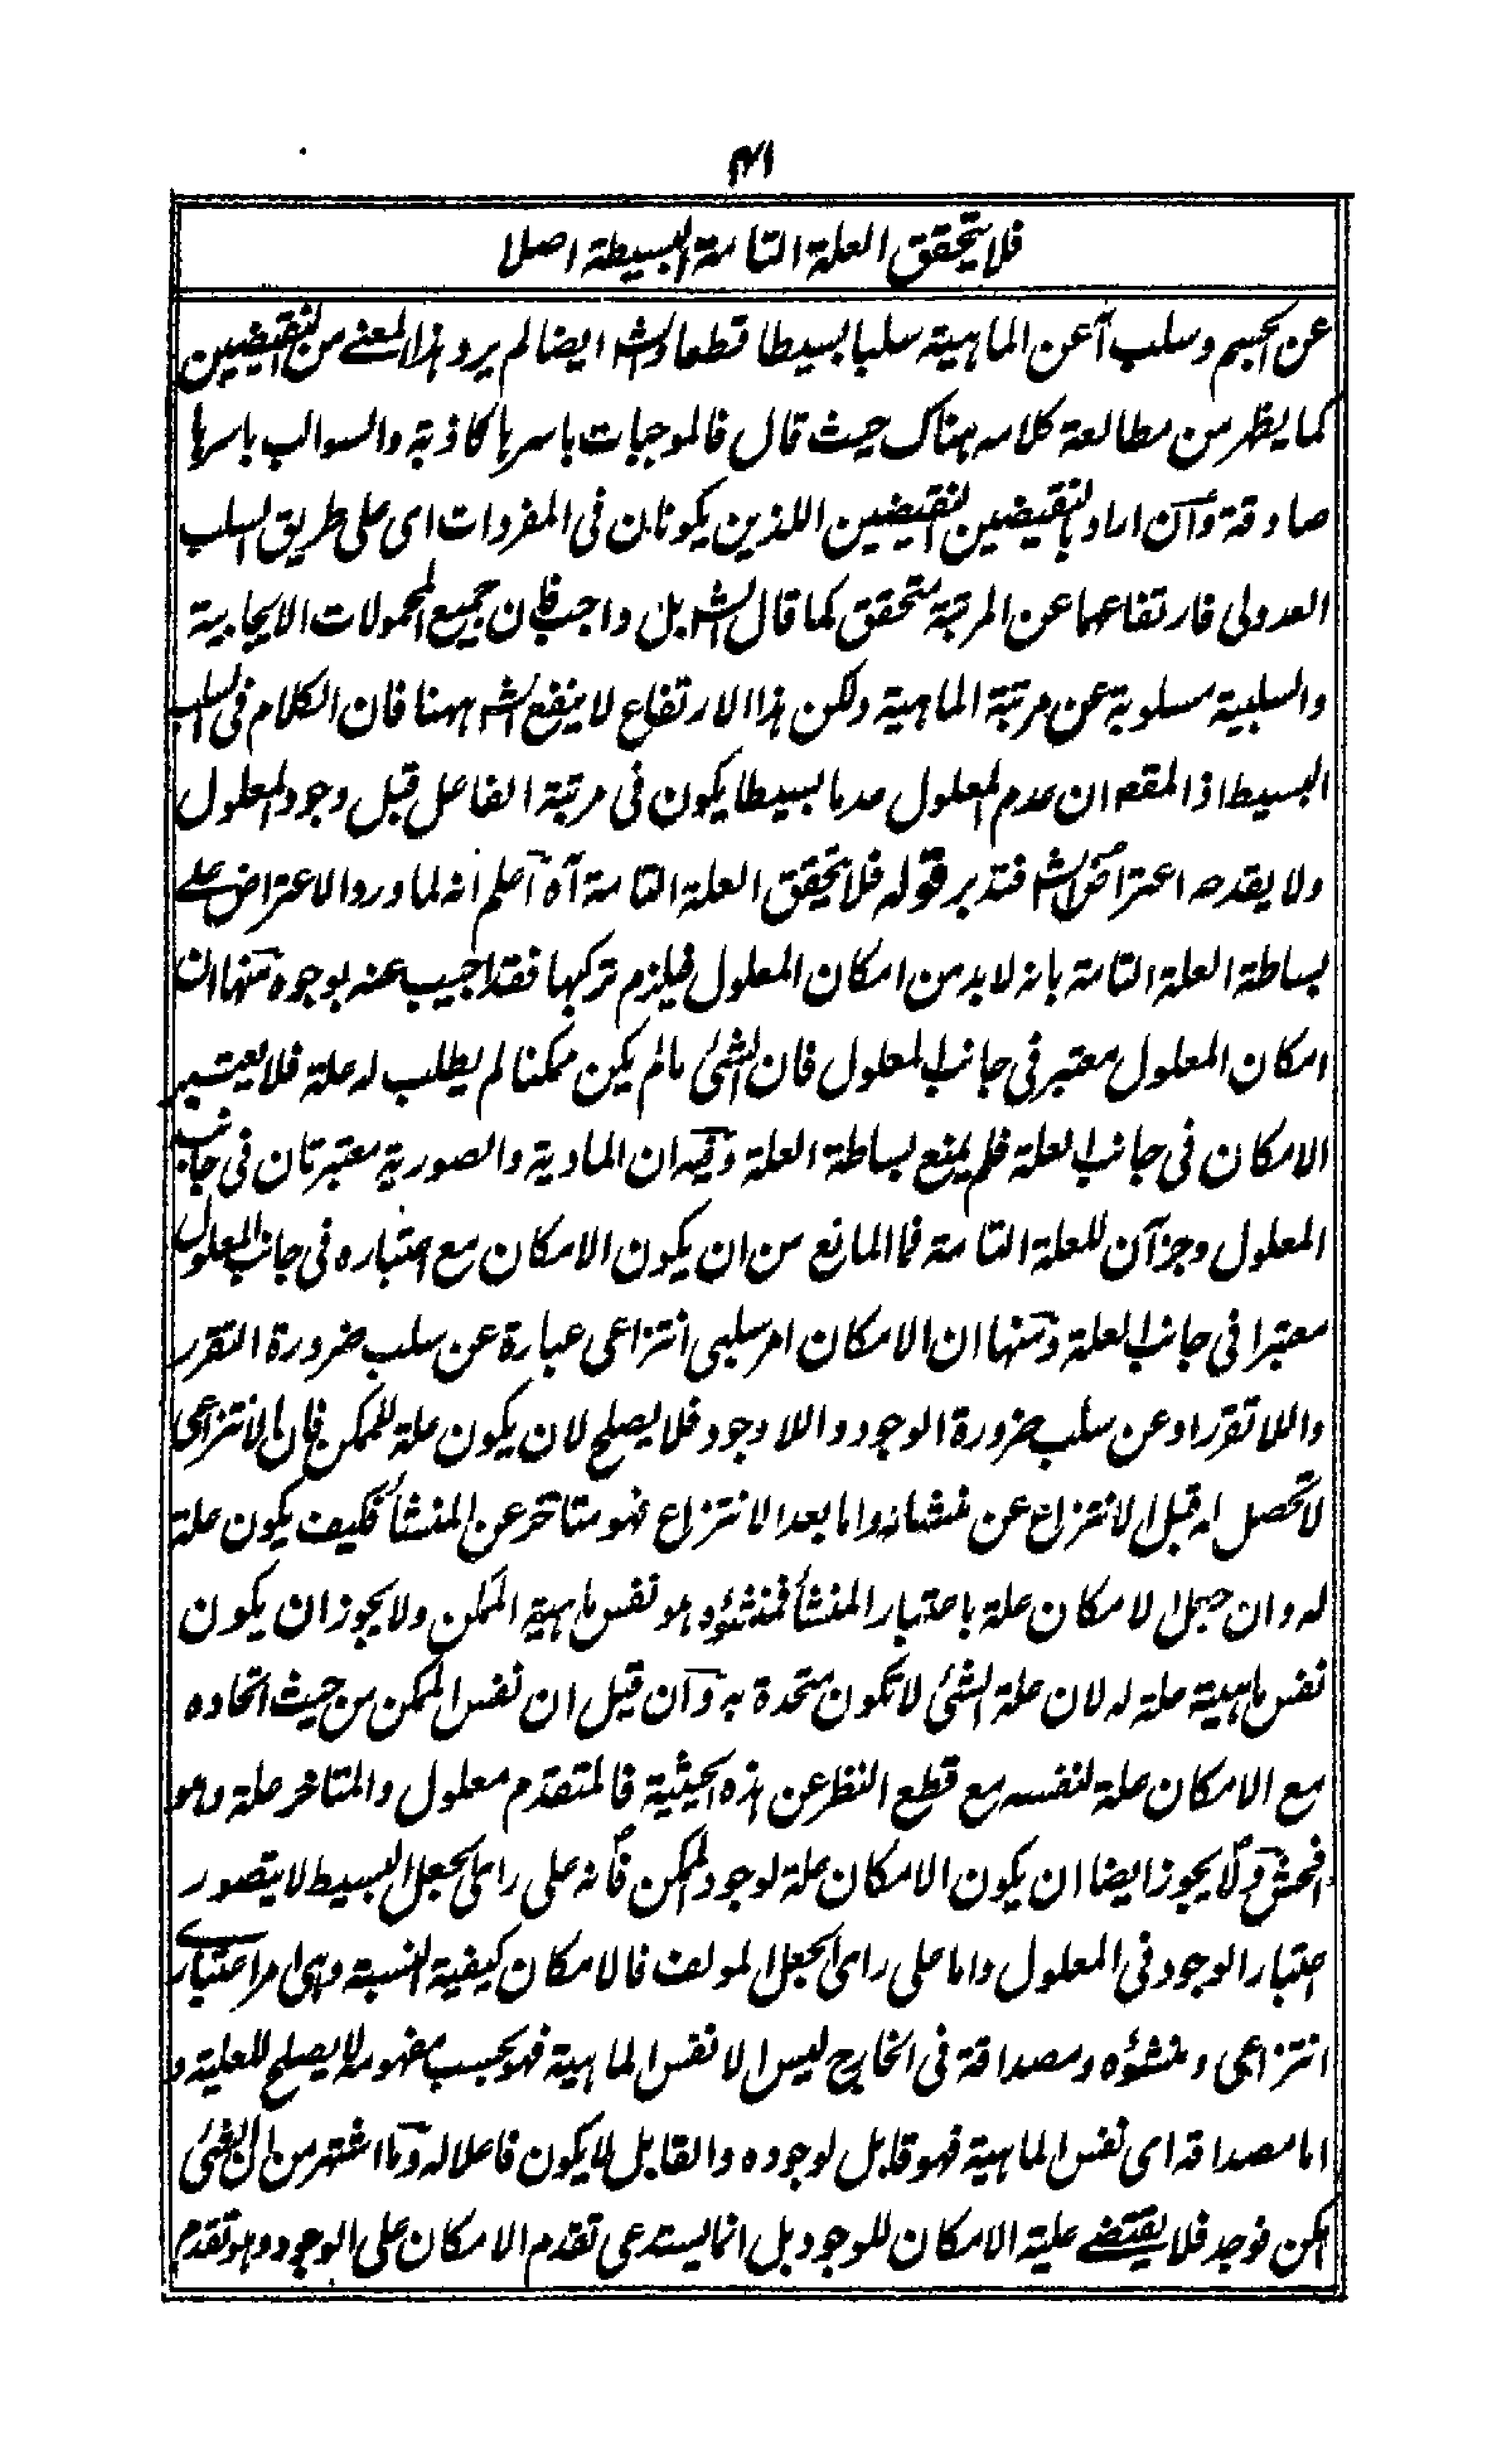 ٣١
فلا يتحقق العلة التامة البسيطة اصلا
عن الجسم وسلب آ عن الماهية سلبا بسيطا قطعا والش ايضا لم يرد هذا المعنى من النقيضين
كما يظهر من مطالعة كلامه هناك حيث قال فالموجبات باسرها كاذبة والسوالب باسرها
صادقة وان اراد بالنقيضين النقيضين اللذين يكونان فى المفردات اى على طريق السلب
العدولى فارتفاعهما عن المرتبة متحقق كما قال الش بل واجب فان جميع المحمولات الايجابية
والسلبية مسلوبة عن مرتبة الماهية ولكن هذا الارتفاع لا ينفع الش ههنا فان الكلام فى السلب
البسيط اذ المقص ان عدم المعلول عدما بسيطا يكون فى مرتبة الفاعل قبل وجود المعلول
ولا يقدحه اعتراض الش فتدبر قوله فلا يتحقق العلة التامة آه اعلم انه لما ورد الاعتراض على
بساطة العلة التامة بانه لا بد من امكان المعلول فيلزم تركبها فقد اجيب عنه بوجوه منها ان
امكان المعلول معتبر فى جانب المعلول فان الشئ ما لم يكن ممكنا لم يطلب له علة فلا يعتبر
الامكان فى جانب العلة فلم يمنع بساطة العلة وفيه ان المادية والصورية معتبرتان فى جانب
المعلول وجزآن للعلة التامة فما المانع من ان يكون الامكان مع اعتباره فى جانب المعلول
معتبرا فى جانب العلة ومنها ان الامكان امر سلبى انتزاعى عبارة عن سلب ضرورة التقرر
واللا تقرر او عن سلب ضرورة الوجود واللا وجود فلا يصلح لان يكون علة للممكن فان الانتزاعى
لا تحصل له قبل الانتزاع عن منشائه واما بعد الانتزاع فهو متاخر عن المنشأ فكيف يكون علة
له وان جعل الامكان علة باعتبار المنشأ فمنشؤه هو نفس ماهية الممكن ولا يجوز ان يكون
نفس ماهية علة له لان علة الشئ لا تكون متحدة به وان قيل ان نفس الممكن من حيث اتحاده
مع الامكان علة لنفسه مع قطع النظر عن هذه الحيثية فالمتقدم معلول والمتاخر علة وهو
افحش ولا يجوز ايضا ان يكون الامكان علة لوجود الممكن فانه على راى الجعل البسيط لا يتصور
اعتبار الوجود فى المعلول واما على راى الجعل المولف فالامكان كيفية النسبة وهى امر اعتبارى
انتزاعى ومنشؤه ومصداقة فى الخارج ليس الا نفس الماهية فهو بحسب مفهومه لا يصلح للعلية و
اما مصداقه اى نفس الماهية فهو قابل لوجوده والقابل لا يكون فاعلا له وما اشتهر من ان الشئ
امكن فوجد فلا يقتضى علية الامكان للوجود بل انما يستدعى تقدم الامكان على الوجود وهو تقدم